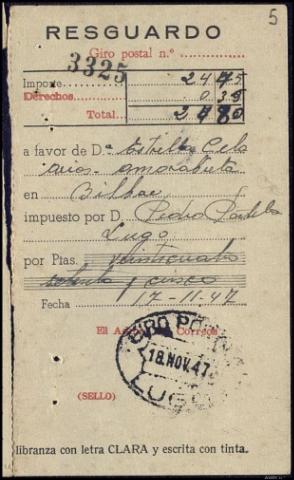 5
RESGUARDO
Giro postal n.º
3325
Importe 24 75
Derechos 0 35
Total
a favor de D.ª Estrella Cela
Rios
en Bilbao
impuesto por D. Pedro Portela
Lugo
por Ptas. veinticuatro
setenta y cinco
Fecha 17-11-47
El Correos
GIRO POSTAL
18 NOV. 47
LUGO
(SELLO)
libranza con letra CLARA y escrita con tinta.